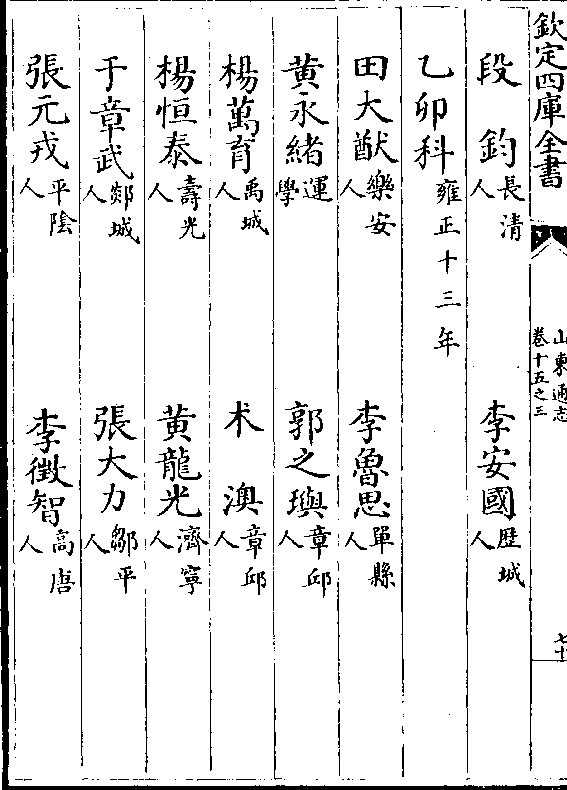 欽定四庫全書
山東通志
卷十五之三
七十
段鈞長清人
李安國歴城人
乙卯科雍正十三年
田大猷樂安人
李魯思單縣人
黄永緒運學
郭之璵章邱人
楊萬育禹城人
术澳章邱人
楊恒泰壽光人
黄龍光濟寧人
于章武郯城人
張大力鄒平人
張元戎平陰人
李徴智高唐人